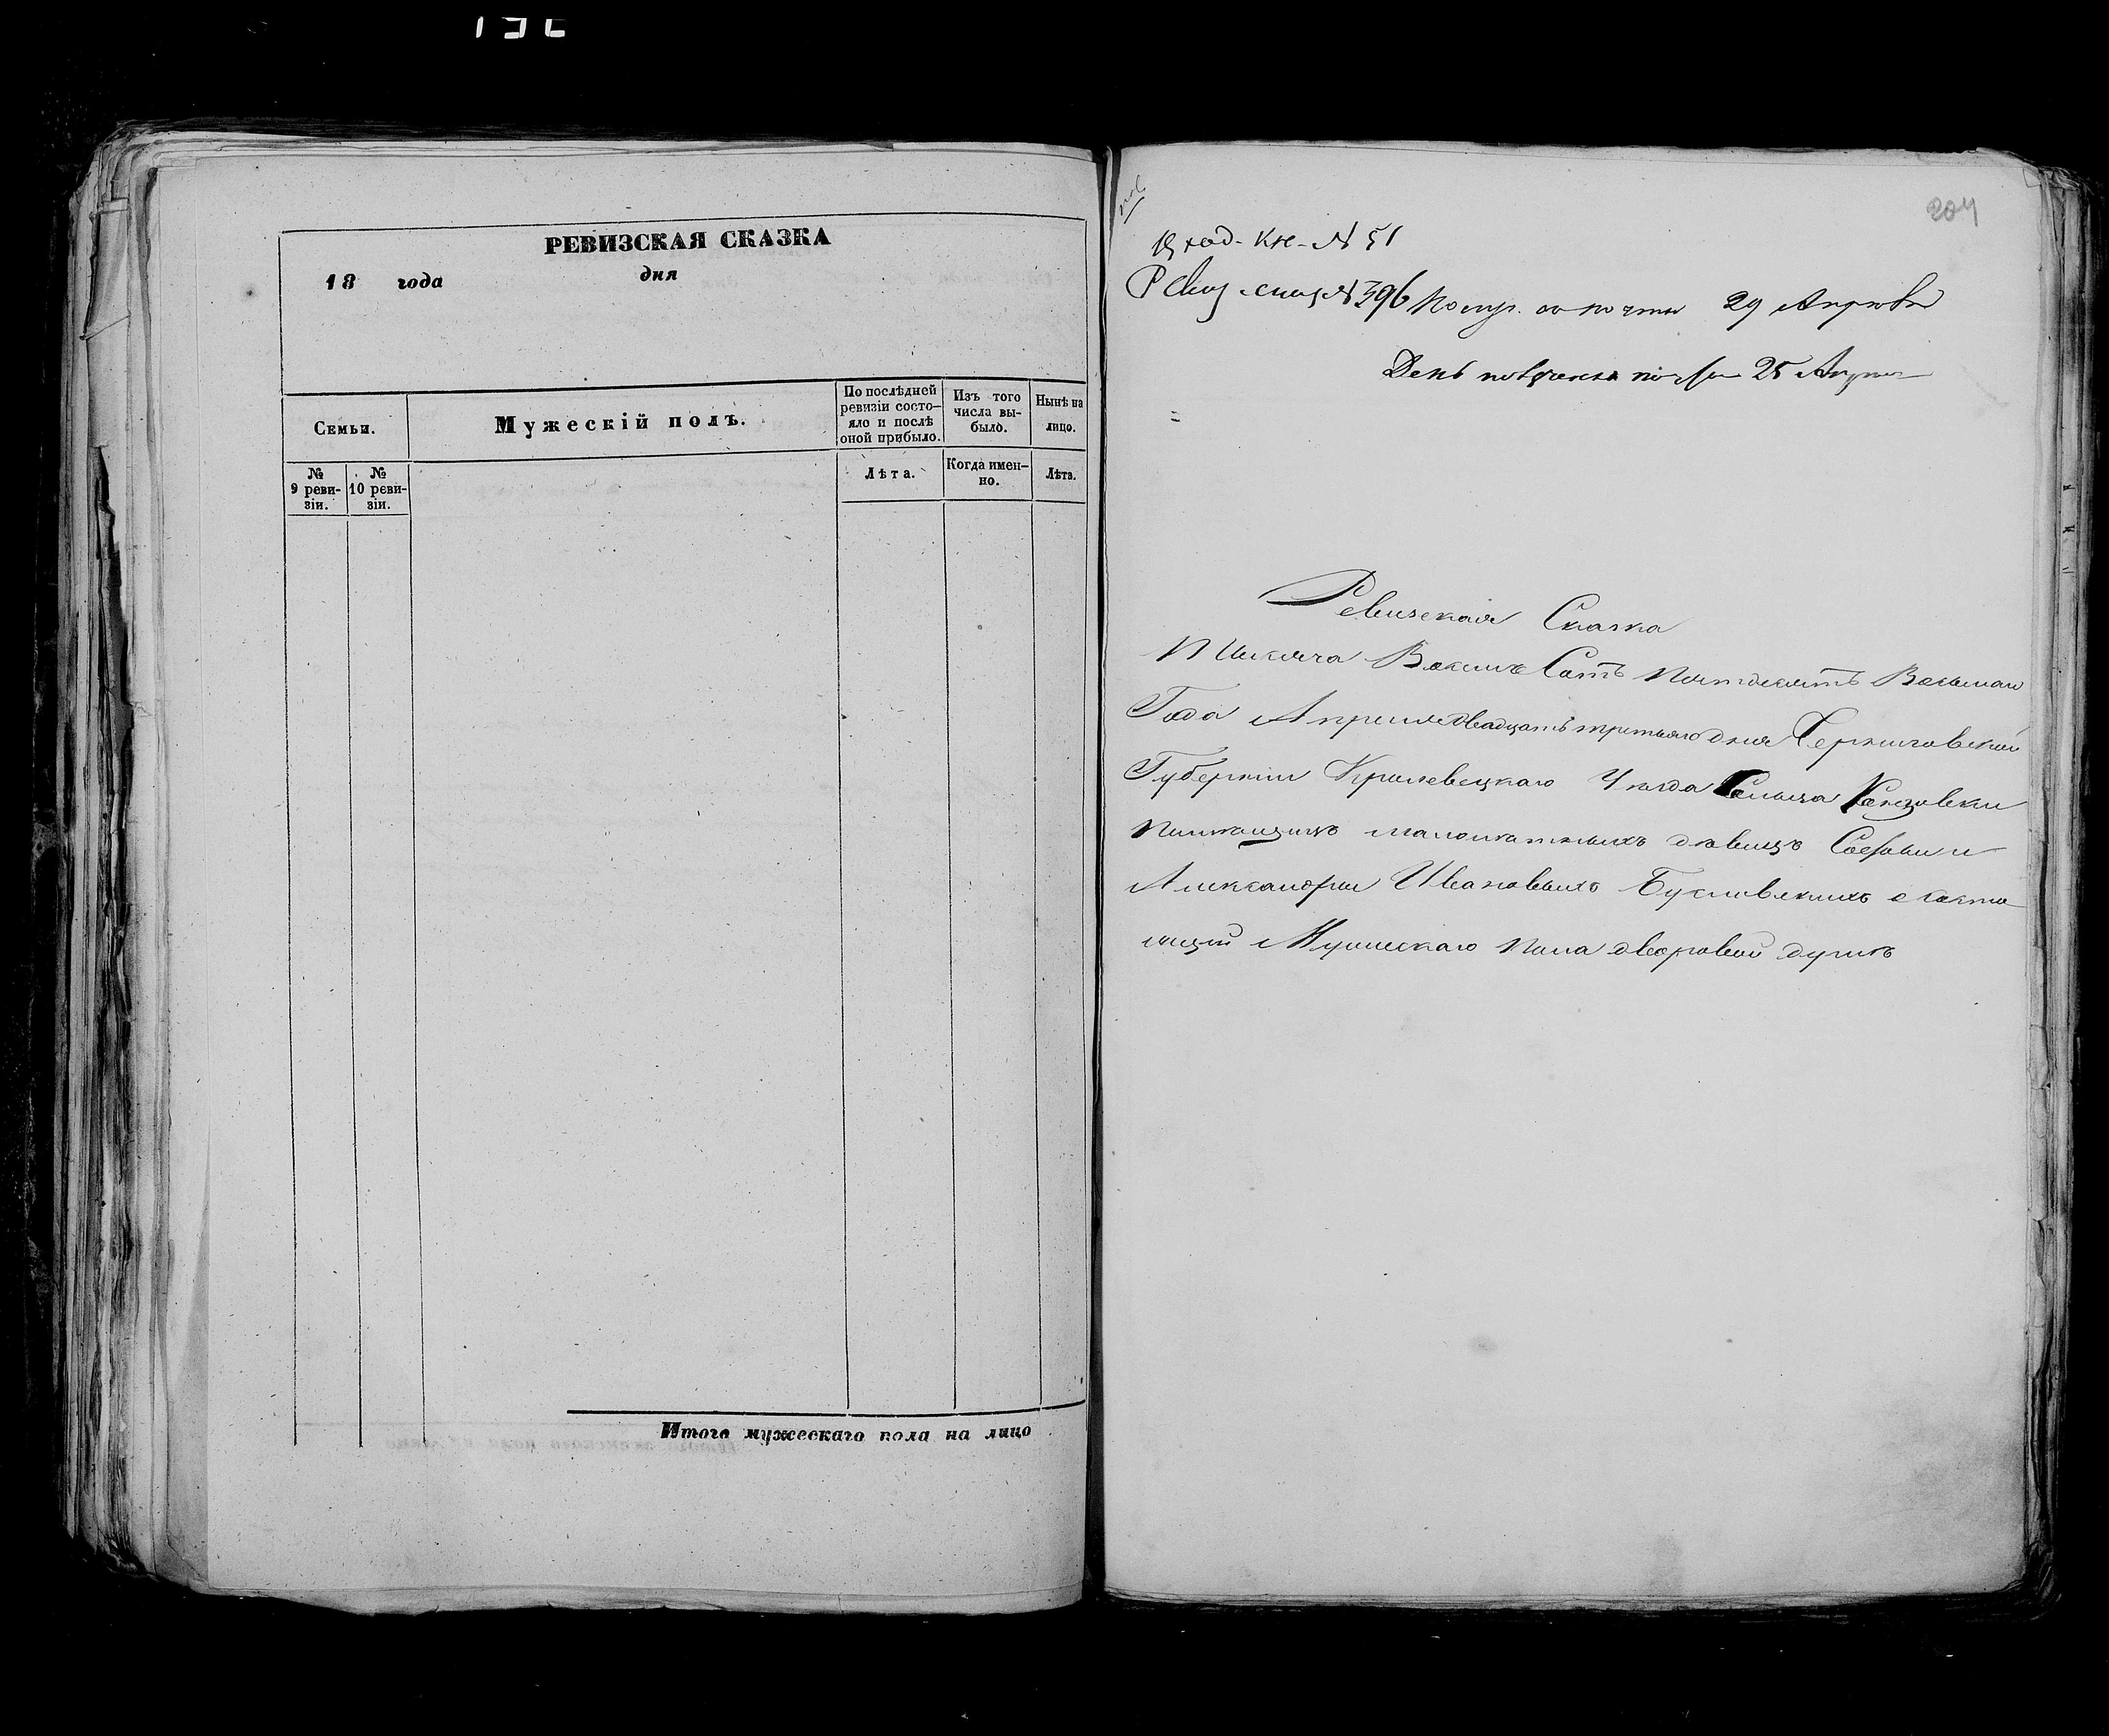 РЕВИЗСКАЯ СКАЗКА
18 года дня
Семьи.
Мужескій полъ.
По послѣдней ревизіи состо-
яло и послѣ
оной прибыло.
Изъ того
числа вы-
было.
Нынѣ на
лицо.
№
9 реви-
зіи.
№
10 реви-
зіи.
Лѣта.
Когда имен-
но.
Лѣта.
Итого мужескаго пола на лицо
204
Вход. Кн. № 51
Ревиз. сказ. № 396 Получ. по почты 29 Апрѣля
День почты 25 Апрѣл
Ревизская Сказка
Тысяча Восемь Сотъ Пятдесятъ Восьмаго
Года Апреля двадцать третьяго дня Черниговской
Губерніи Кролевецкаго Уезда Сельца
Помещицъ малолетныхъ девицъ Софьи и
Александры Ивановныхъ о состо
ящей Мужескаго Пола дворовой души